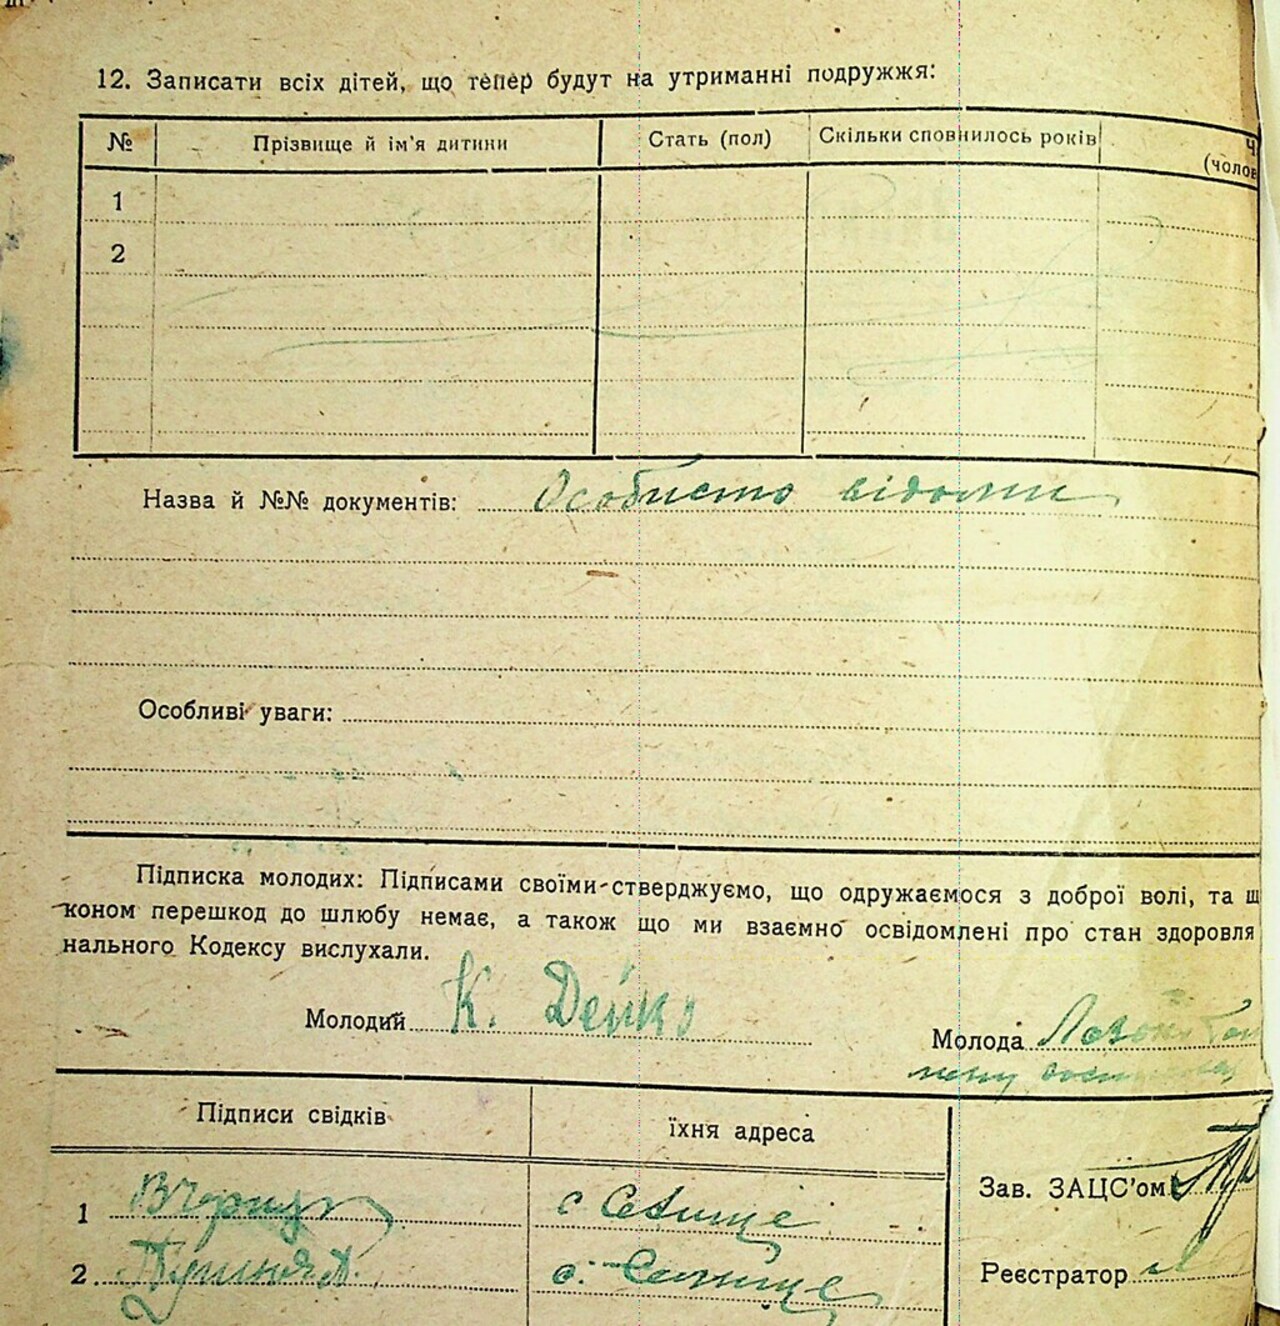 12. Записати всіх дітей, що тепер будут на утриманні подружжя:
№ Прізвище й ім'я дитини Стать (пол) Скільки сповнилось років
(чолов
1
2
Назва й №№ документів: Особисто відомі
Особливі уваги:
Підписка молодих: Підписами своїми стверджуємо, що одружаємося з доброї волі, та щ
коном перешкод до шлюбу немає, а також що ми взаємно освідомлені про стан здоровля
нального Кодексу вислухали.
Молодий К. Дейко
Молода
Підписи свідків їхня адреса
Зав. ЗАЦС'ом
1 с Селище
2 с. Селище
Реєстратор